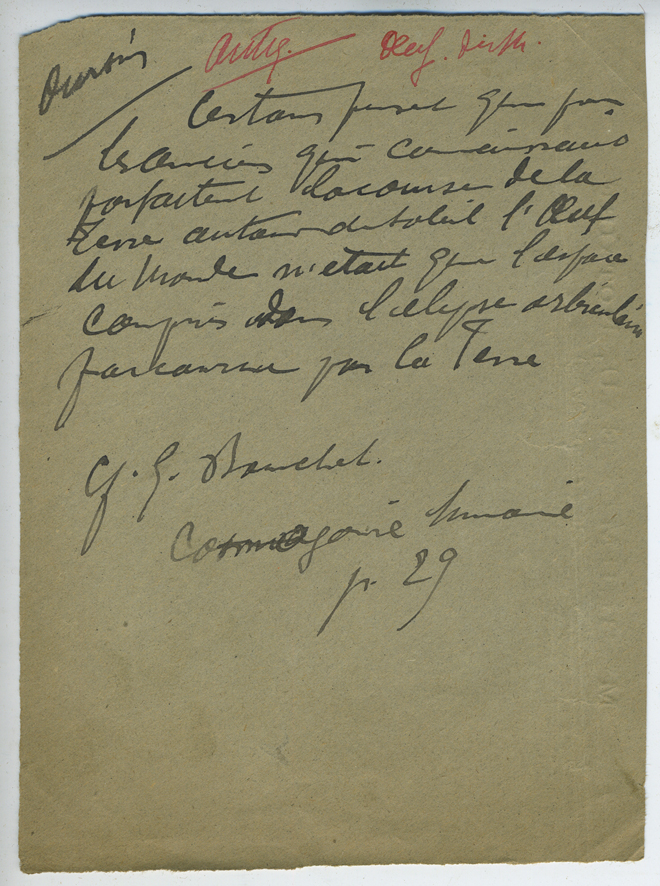 Oursins antiq. Oeuf. 
Certains pensent que pour
les anciens qui connaissaient
parfaitent la course de la
Terre autour du Soleil l'Oeuf
du Monde n'était que l'espace
compris dans l'elipse
parcourue par la Terre
cf. G. Bouchet.
Cosmogonie humaine
p. 29